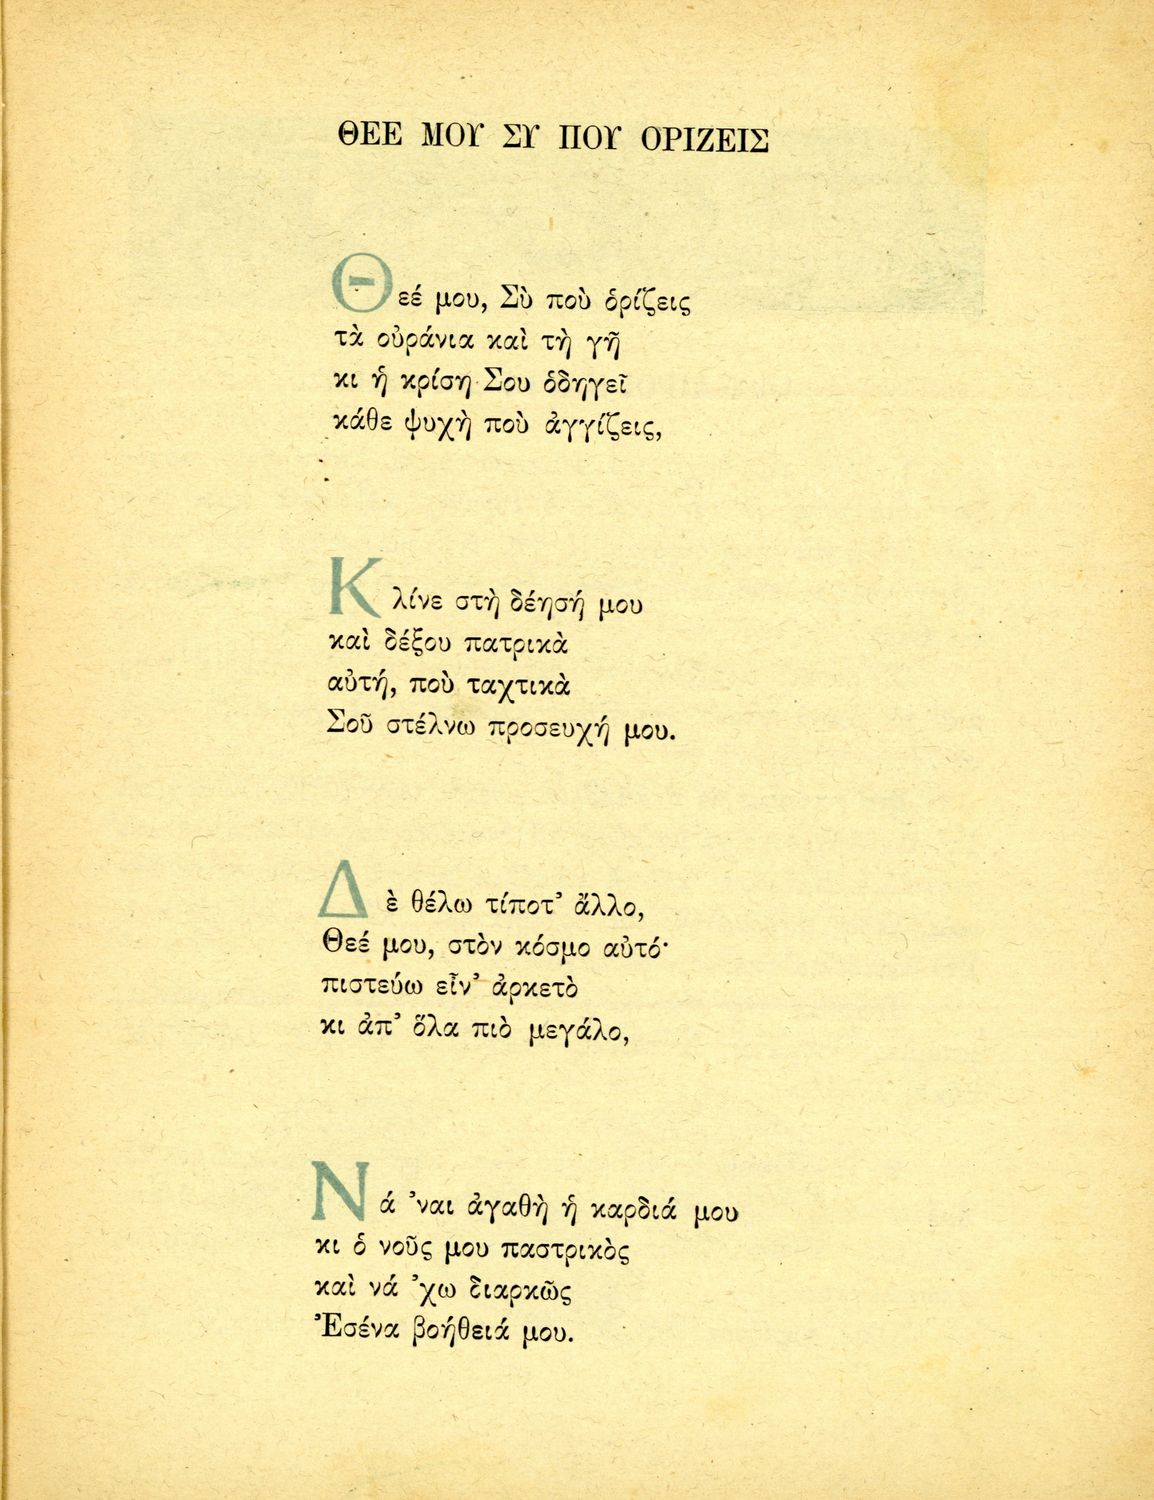 ΘΕΕ ΜΟΥ ΣΥ ΠΟΥ ΟΡΙΖΕΙΣ
Θεέ μου, Σὺ ποὺ ὁρίζεις
τὰ οὐράνια καὶ τὴ γῆ
κι ἡ κρίση Σου ὁδηγεῖ
κάθε ψυχὴ ποὺ ἀγγίζεις,
Κλίνε στὴ δέησή μου
καὶ δέξου πατρικὰ
αὐτή, ποὺ ταχτικὰ
Σοῦ στέλνω προσευχή μου.
Δὲ θέλω τίποτ’ ἄλλο,
Θεέ μου, στὸν κόσμο αὐτό·
πιστεύω εἶν’ ἀρκετὸ
κι ἀπ’ ὅλα πιὸ μεγάλο,
Νά ’ναι ἀγαθὴ ἡ καρδιά μου
κι ὁ νοῦς μου παστρικὸς
καὶ νά ’χω διαρκῶς
Ἐσένα βοήθειά μου.